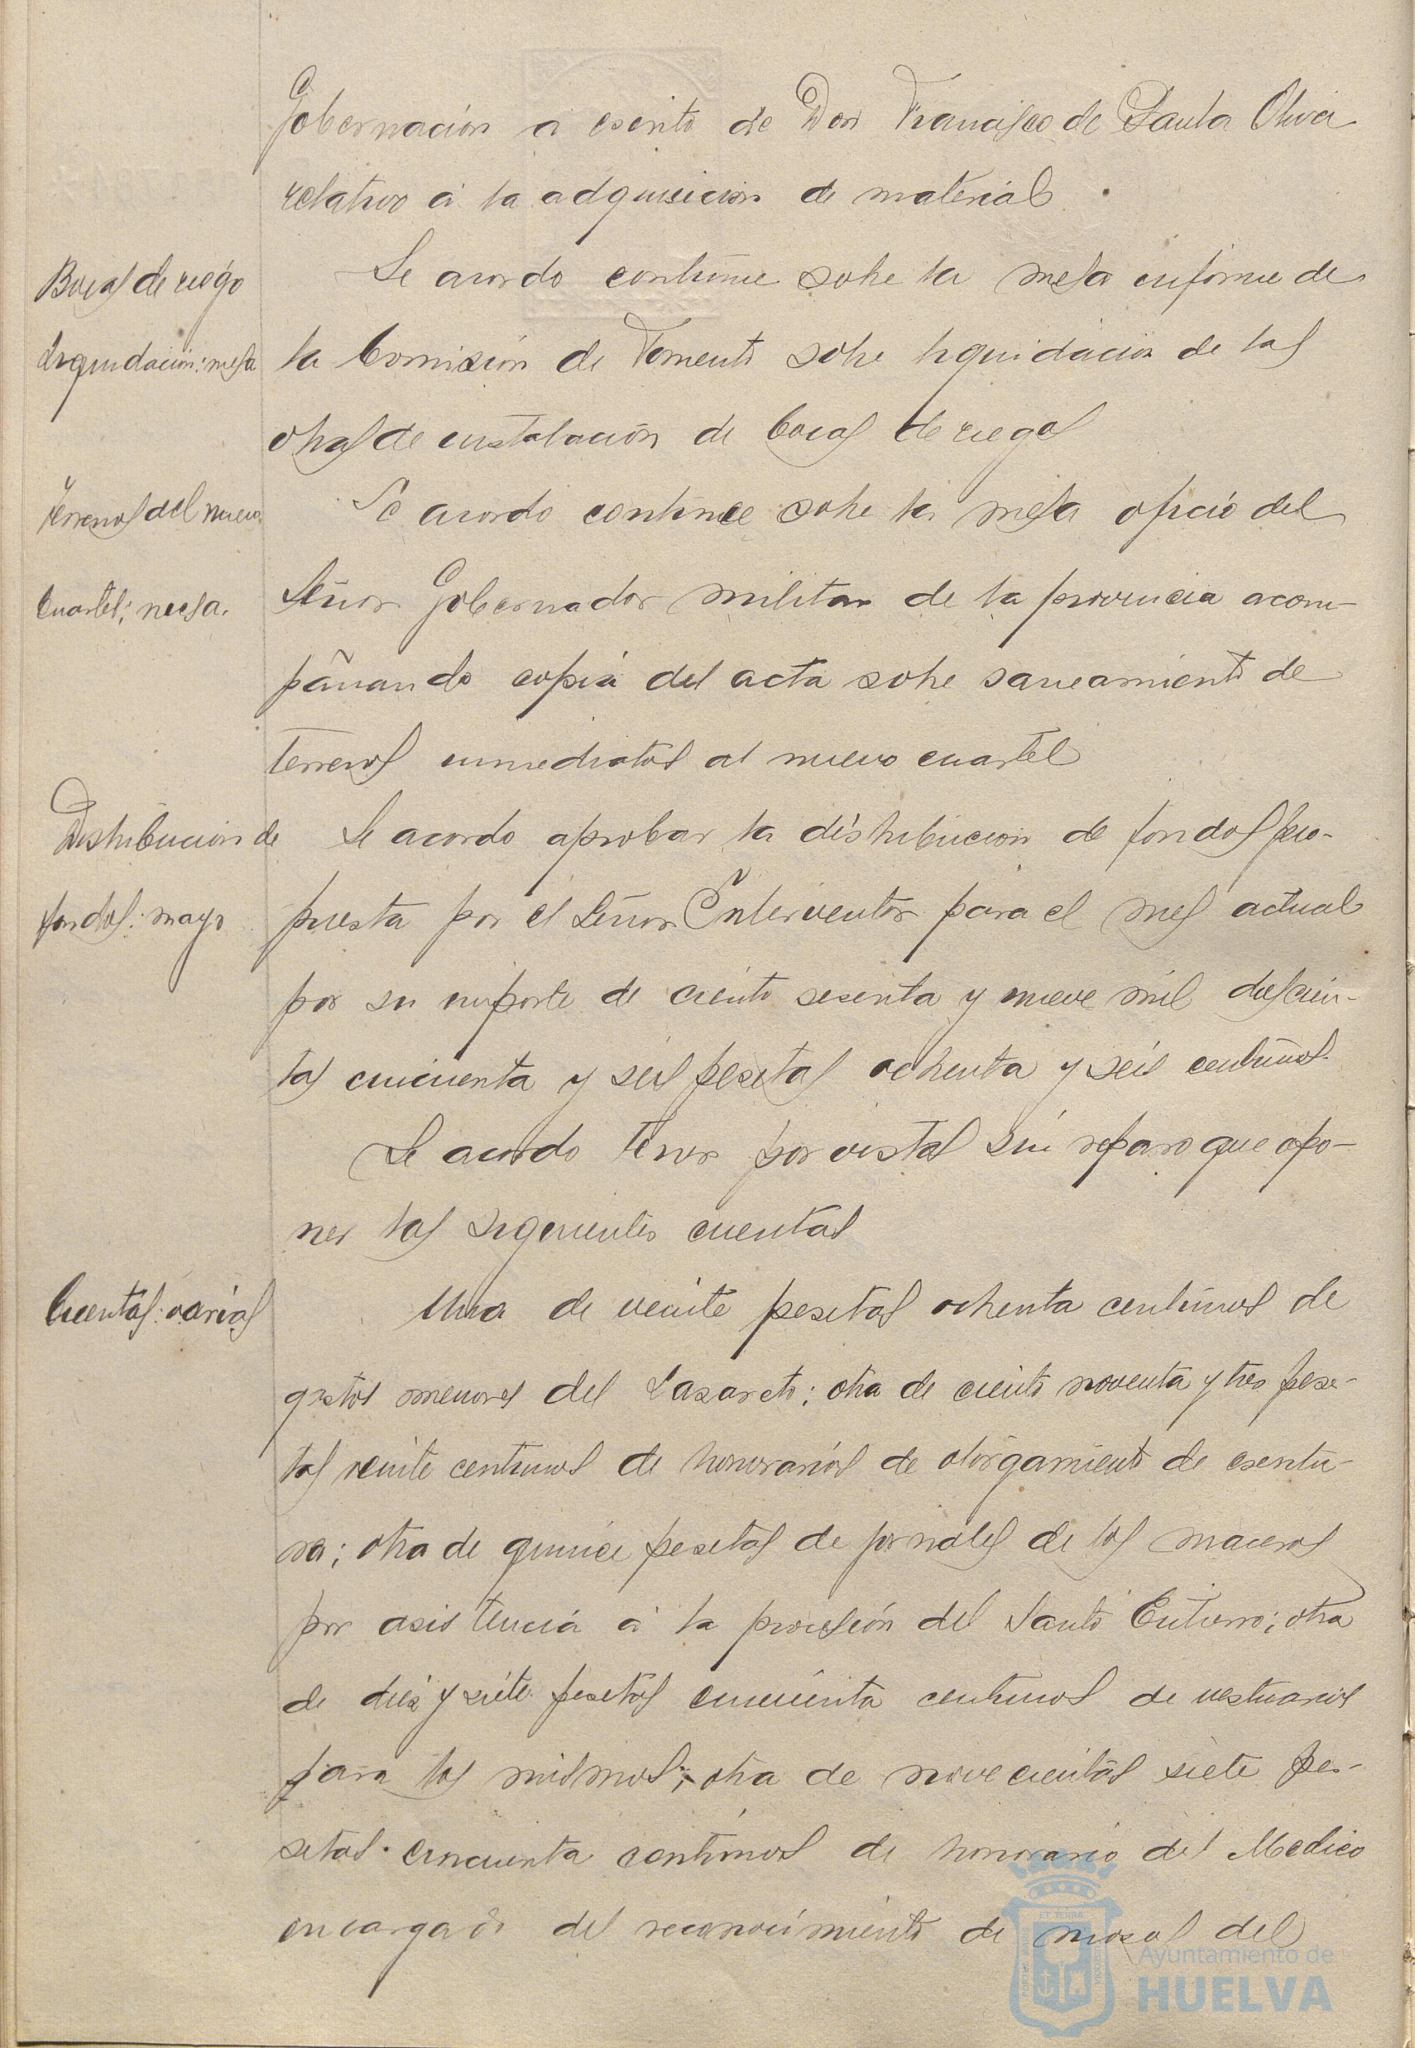 Gobernacion a escrito de Don Francisco de Paula Oliva
relativo á la adquisicion de material
Bocas de riego
Se acordo continue sobre la mesa informe de
liquidacion: mesa
la Comisión de Fomento sobre liquidacion de las
obras de instalación de bocas de riegos
Terrenos del nuevo
Se acordo continue sobre la mesa oficio del
cuartel; mesa.
Señor Gobernador militar de la provincia acom-
pañando copia del acta sobre saneamiento de
terrenos inmediatos al nuevo cuartel
Distribucion de
Se acordo aprobar la distribucion de fondos pro-
fondos: mayo
puesta por el Señor Interventor para el mes actual
por su importe de ciento sesenta y nueve mil doscien-
tas cincuenta y seis pesetas ochenta y seis centimos.
Se acordo tener por vistas sin reparo que opo-
ner las siguientes cuentas
Cuentas: varias
Una de veinte pesetas ochenta centimos de
gastos menores del Lazareto; otra de ciento noventa y tres pese-
tas veinte centimos de honorarios de otorgamiento de escritu-
ra; otra de quince pesetas de jornales de los maceros
por asistencia á la procesión del Santo Entierro; otra
de diez y siete pesetas cincuenta centimos de vestuarios
para los mismos; otra de novecientas siete pe-
setas cincuenta centimos de honorario del Medico
encargado del reconocimiento de mozos del
ET TERRA
Ayuntamiento de
HUELVA